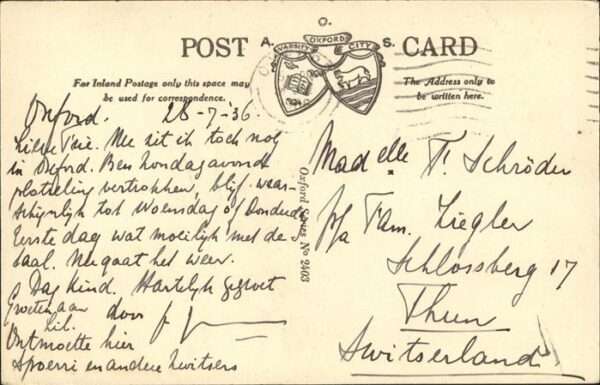 O.
POST A. OXFORD S. CARD
VARSITY CITY
For Inland Postage only this space may
be used for correspondence.
The Address only to
be written here.
Oxford. 28-7-'36.
Nu zit ik toch nog
in Oxford. Ben Zondagavond
plotseling vertrokken, blijf waar-
schijnlijk tot Woensdag of Donderd.
Eerste dag wat moeilijk met de
taal. Nu gaat het weer.
Dag kind. Hartelijk gegroet
Groeten aan door
Ontmoette hier
Spoerri en andere Zwitsers
Oxford Series No 2403
Mad elle T. Schröder
p/a Fam. Ziegler
Schlossberg 17
Thun
Switserland